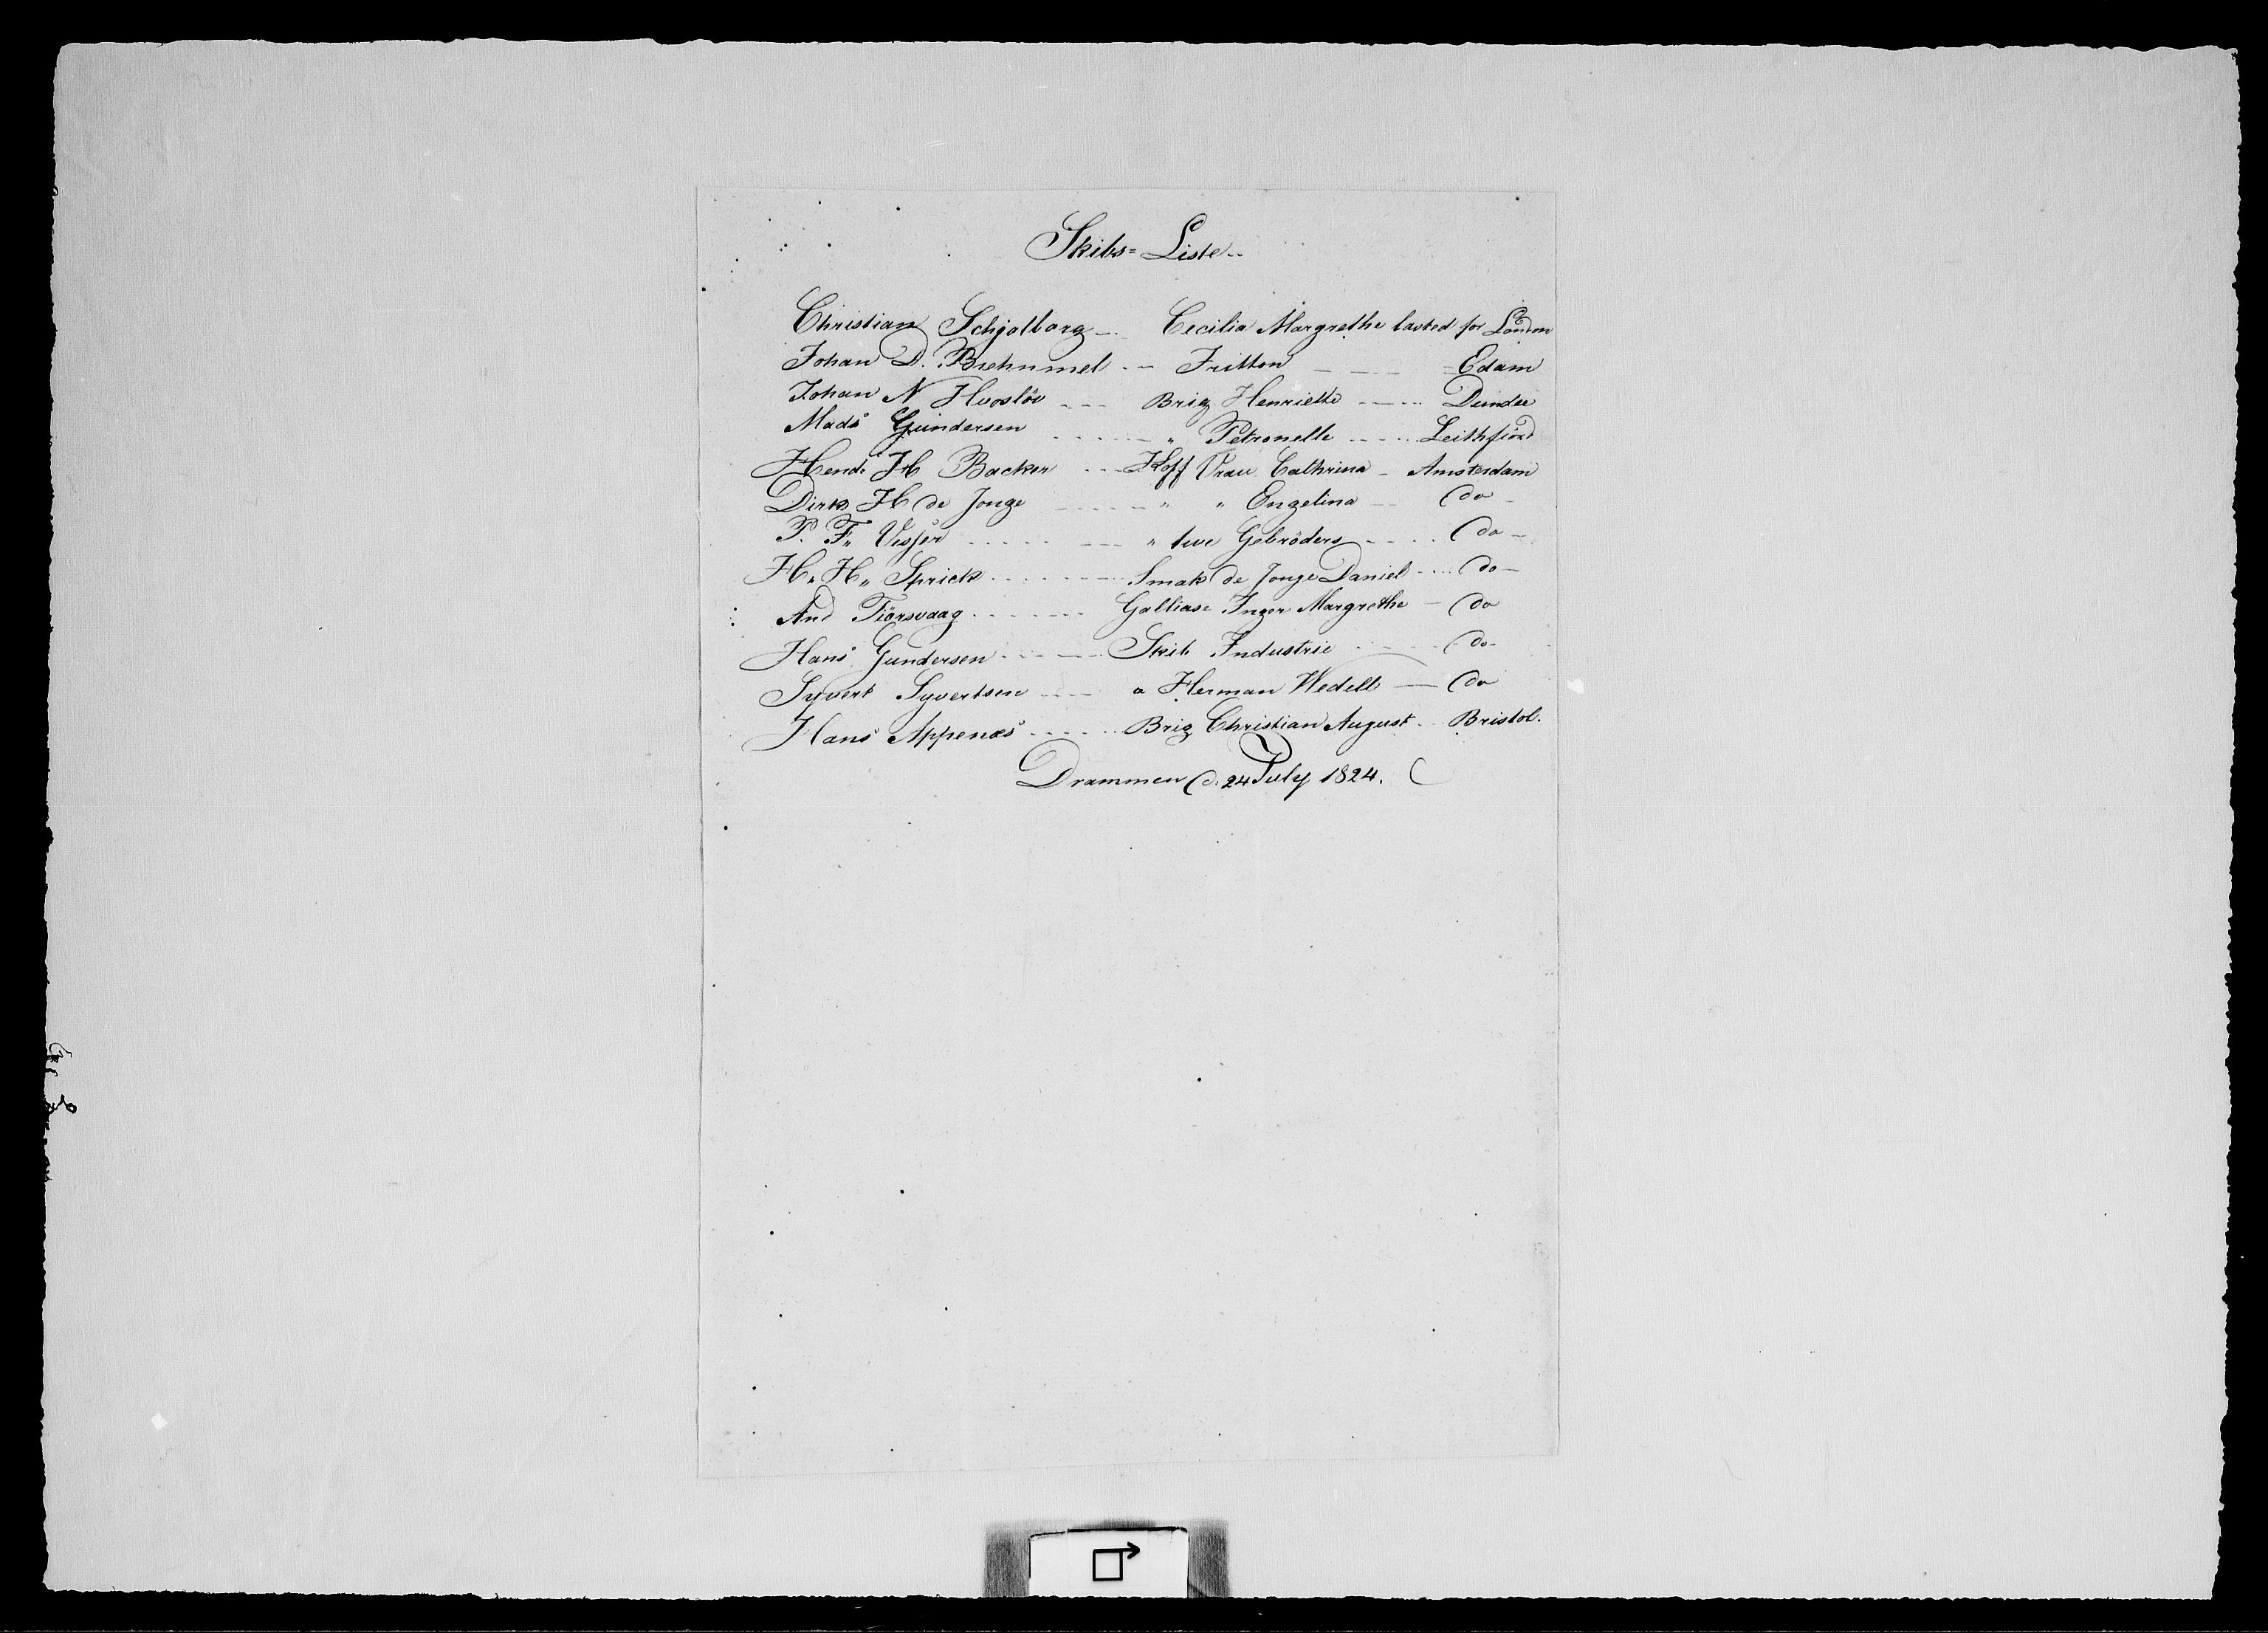 Skibs= Liste..
Christian Schjølborg -.. Cecilia Margrethe lasted for London
Johan D. Brehmmel .- Fritton - -- = Edam
Johan N Hvosløv --- Brig Henriette ---.. Dundee
Mads Gundersen ------ " Petronelle ----- Leithfiord
Hend: H Backer --- Koff Vrau Cathrina - Amsterdam
Dirk H de Jonge ------ " " Engelina -- do -
P. F. Visser ..... --- " twe Gebröders ---.. do -
H. H. Sprick ........ Smak de Jonge Daniel ... do -
And Tiörsvaag ....... Galliase Inger Margrethe - do
Hans Gundersen ...... Skib Industrie ..... do -
Syvert Syvertsen ---- " Herman Wedell -- do
Hans Appenæs ...... Brig Christian August .. Bristol.
Drammen d. 24 July 1824.